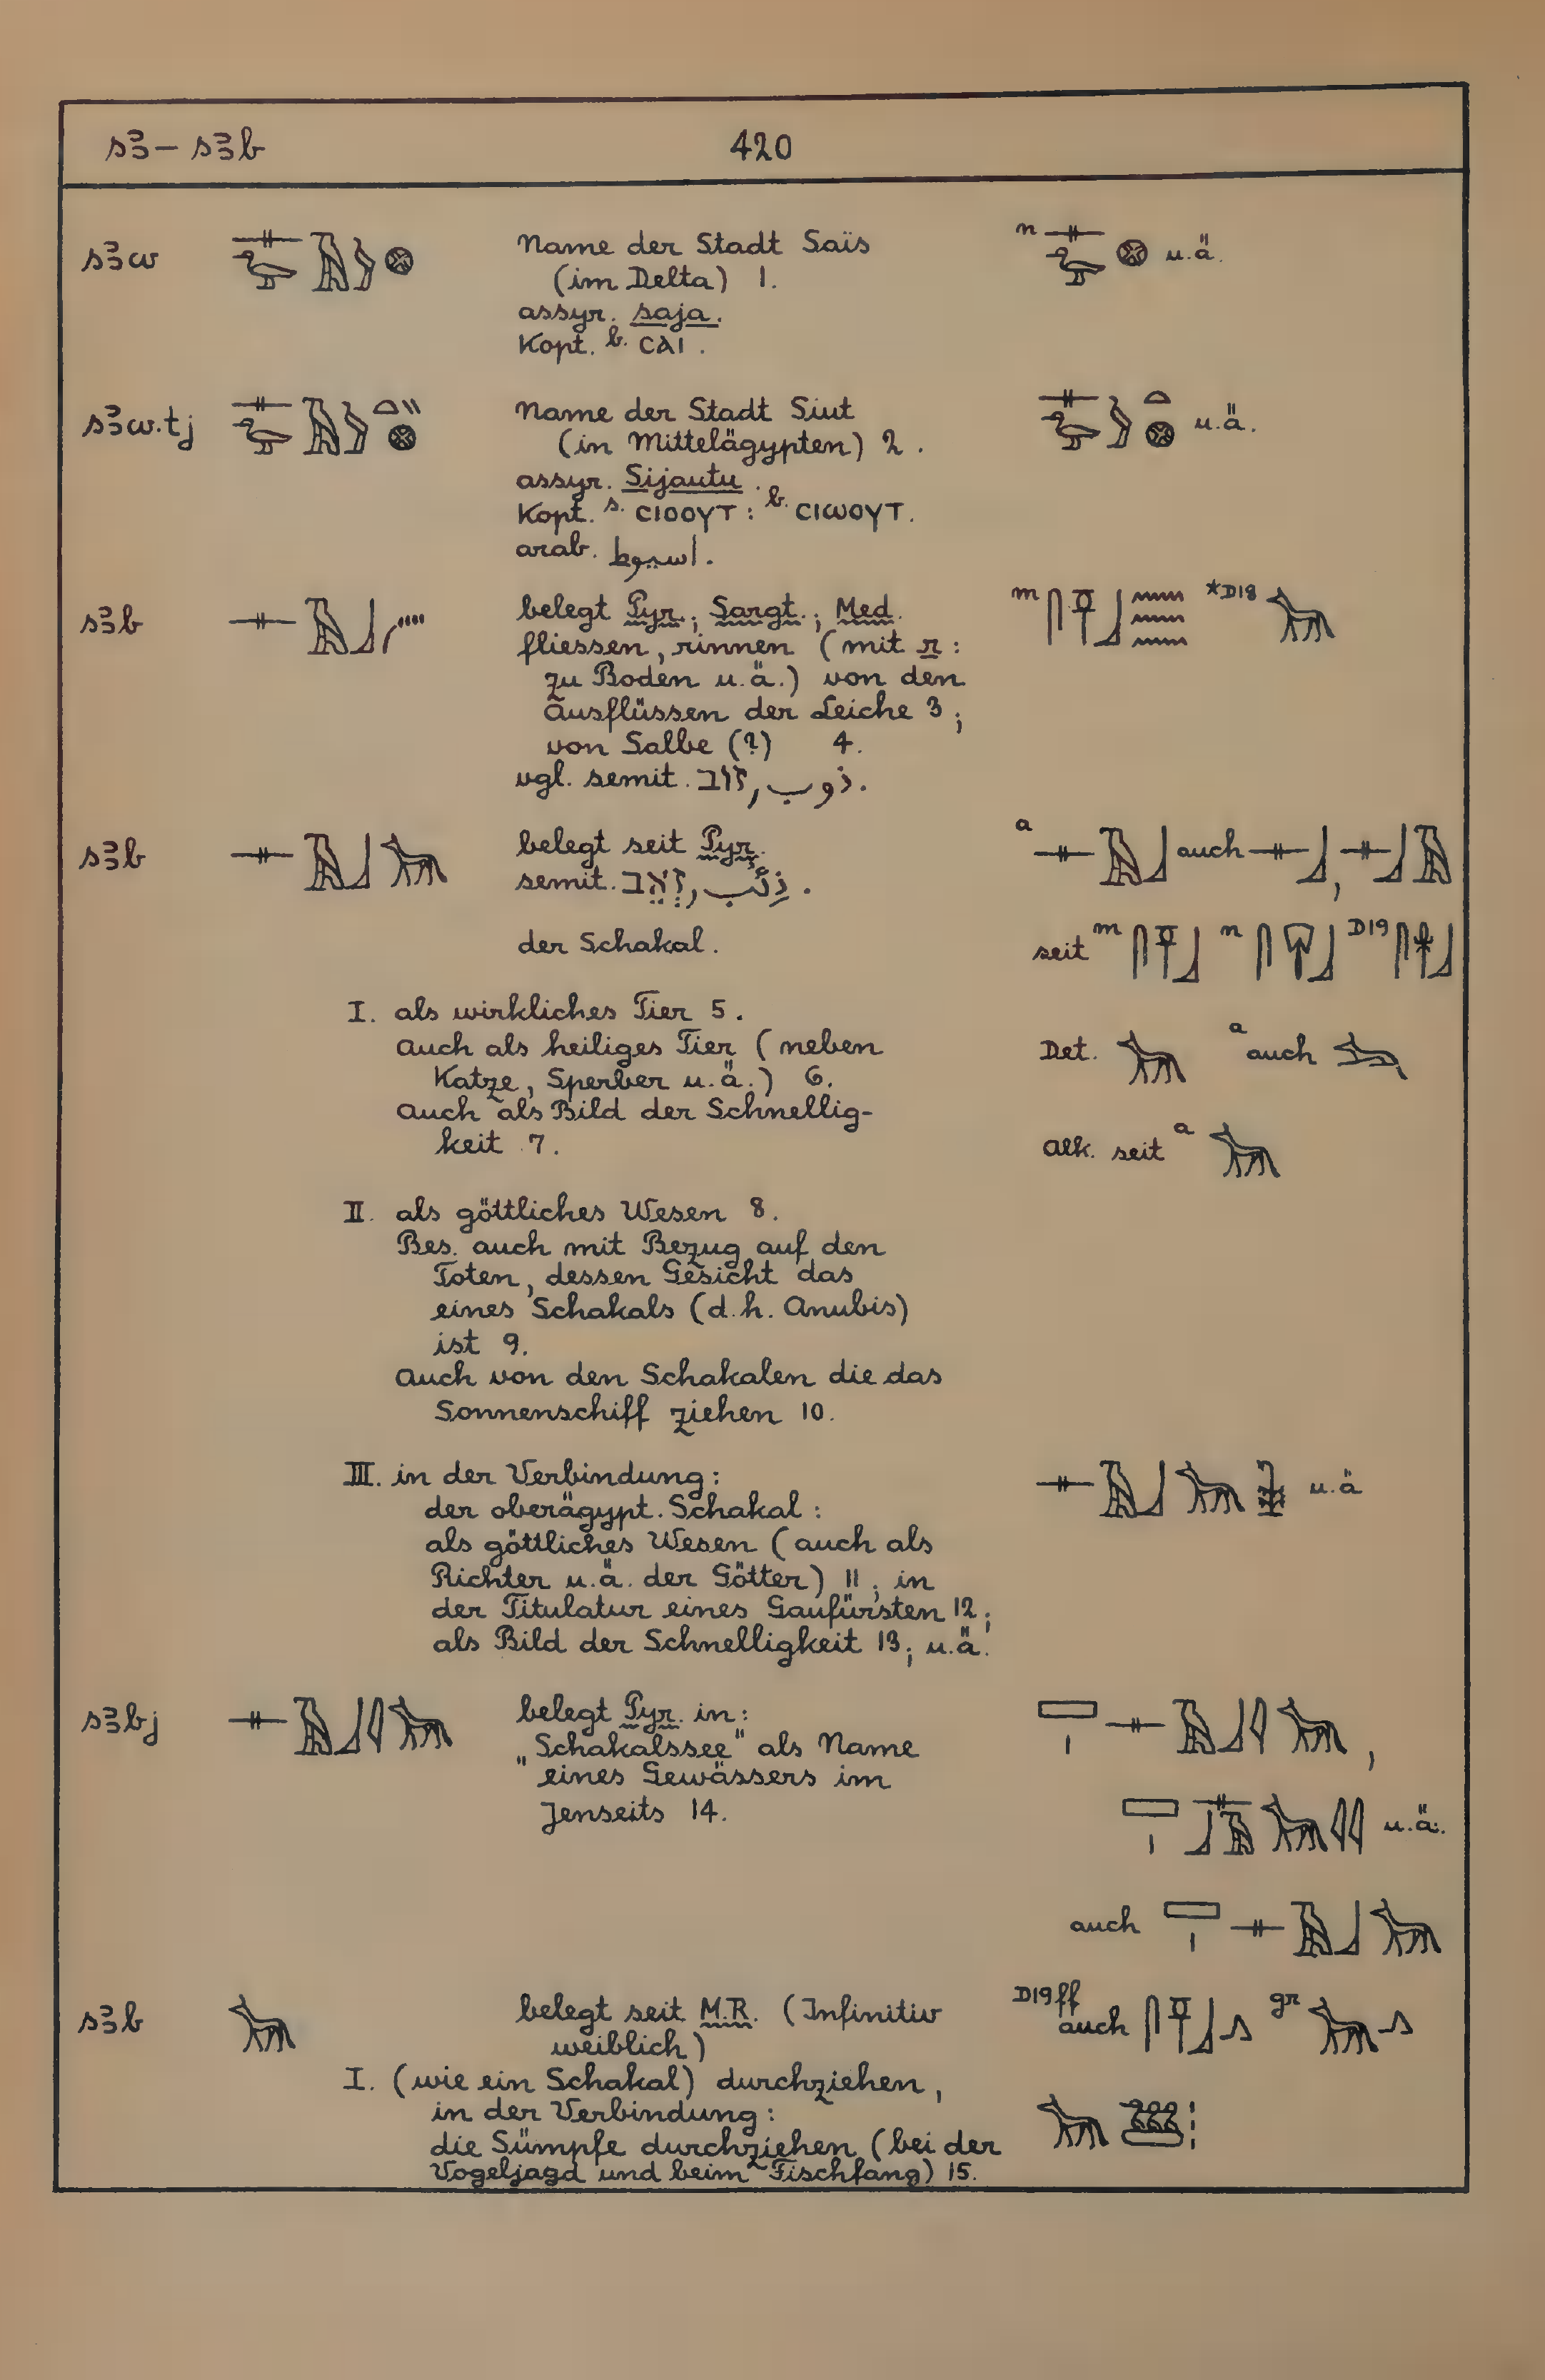 sꜣ – sꜣb 420
sꜣw Name der Stadt Saïs n u.ä.
(im Delta) 1.
assyr. saja.
Kopt. b. ⲥⲁⲓ.
sꜣw.tj Name der Stadt Siut u.ä.
(in Mittelägypten) 2.
assyr. Sijautu.
Kopt. s. ⲥⲓⲟⲟⲩⲧ : b. ⲥⲓⲱⲟⲩⲧ.
arab. اسيوط.
sꜣb belegt Pyr.; Sargt.; Med. m *D18
fliessen, rinnen (mit r:
zu Boden u.ä.) von den
Ausflüssen der Leiche 3;
von Salbe (?) 4.
vgl. semit. זוב, ذوب.
sꜣb belegt seit Pyr. a auch ,
semit. זְאֵב, ذِئْب.
der Schakal. seit m n D19
I. als wirkliches Tier 5.
Auch als heiliges Tier (neben Det. a auch
Katze, Sperber u.ä.) 6.
Auch als Bild der Schnellig-
keit 7. Abk. seit a
II. als göttliches Wesen 8.
Bes. auch mit Bezug auf den
Toten, dessen Gesicht das
eines Schakals (d.h. Anubis)
ist 9.
Auch von den Schakalen die das
Sonnenschiff ziehen 10.
III. in der Verbindung: u.ä
der oberägypt. Schakal:
als göttliches Wesen (auch als
Richter u.ä. der Götter) 11; in
der Titulatur eines Gaufürsten 12;
als Bild der Schnelligkeit 13; u.ä.
sꜣbj belegt Pyr. in: ,
„Schakalssee" als Name
eines Gewässers im
Jenseits 14. u.ä.
auch
sꜣb belegt seit M.R. (Infinitiv D19ff auch gr
weiblich)
I. (wie ein Schakal) durchziehen,
in der Verbindung:
die Sümpfe durchziehen (bei der
Vogeljagd und beim Fischfang) 15.